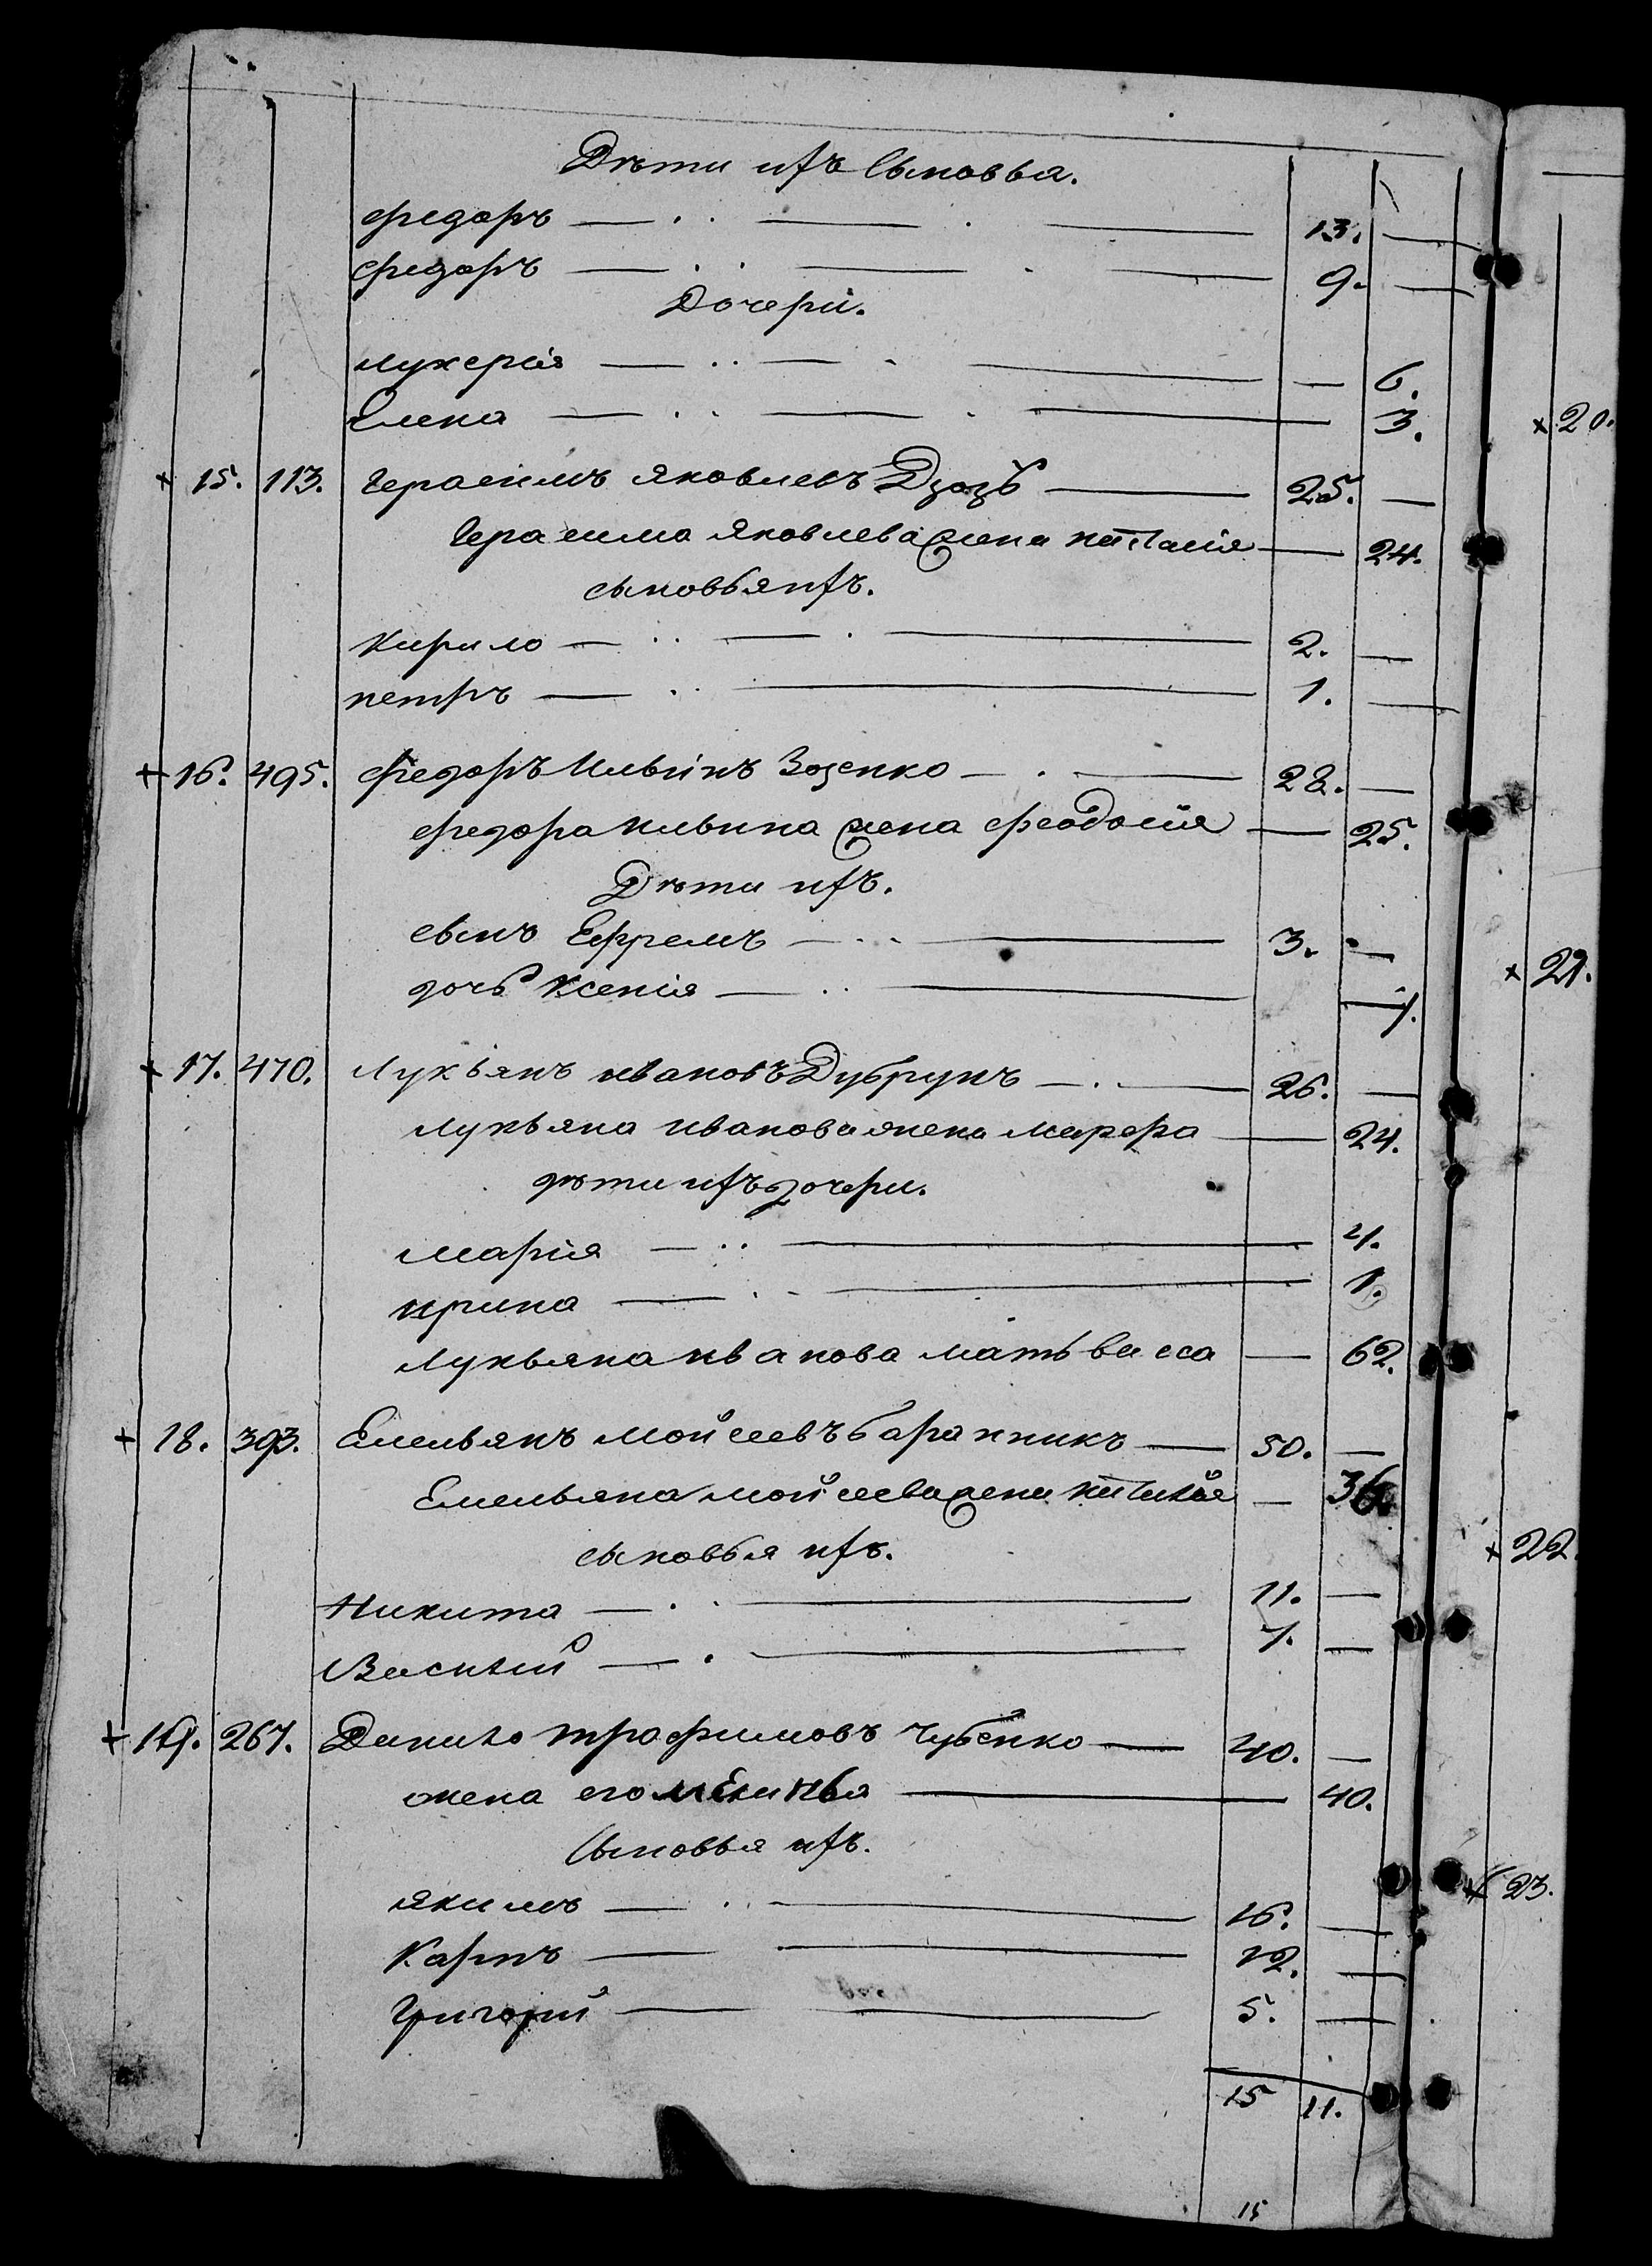 Дѣти ихъ Сыновья.
федоръ 13.
федоръ 9.
Дочери.
лукерія 6.
Елена 3.
15. 113. Герасимъ яковлевъ Дзюзь 25.
Герасима яковлева жена наталія 24.
сыновья ихъ.
Кирило 2.
петръ 1.
16. 495. федоръ Ильинъ Зозенко 28.
федора ильина жена феодосія 25.
Дѣти ихъ.
сынъ Ефремъ 3.
дочь Ксенія
17. 470. Лукьянъ ивановъ 26.
лукьяна иванова жена марфа 24.
дѣти ихъ дочери.
марія 4.
ирина 1.
лукьяна иванова мать васса 62.
18. 393. Емельянъ мойсеевъ баранникъ 50.
Емельяна мойсеева жена наталія 36.
сыновья ихъ.
Никита 11.
Василій 7.
19. 267. Данило трофимовъ Чубенко 40.
жена его меланья 40.
Сыновья ихъ.
якимъ 16.
Карпъ 12.
Григорій 5.
15 11.
15
20.
21.
22.
23.